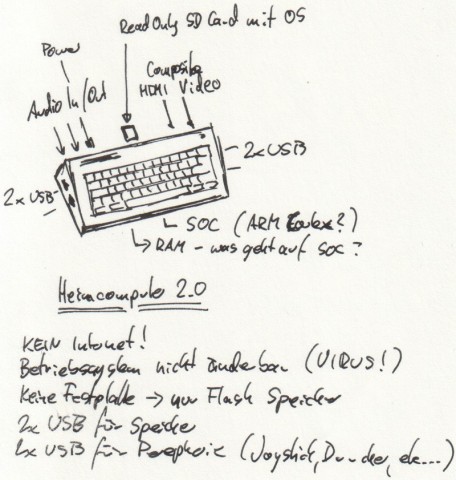 Read Only SD Card mit OS
Power
Composite
HDMI Video
Audio In/Out
2x USB
2x USB
SOC (ARM Cortex?)
RAM - was geht auf SOC?
Heimcomputer 2.0
KEIN Internet!
Betriebssystem nicht änderbar (VIRUS!)
Keine Festplatte → nur Flash Speicher
2x USB für Speicher
2x USB für Peripherie (Joystick, Drucker, etc...)